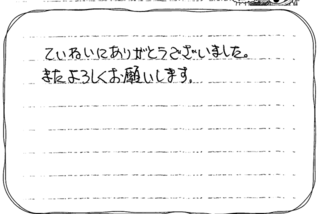 ていねいにありがとうございました。
またよろしくお願いします。